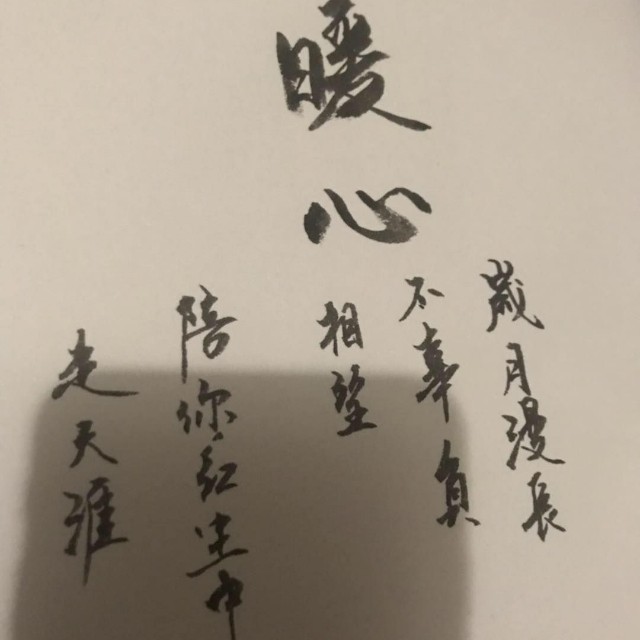 暖心
歲月漫長
不辜負
相望
陪你红尘中
走天涯